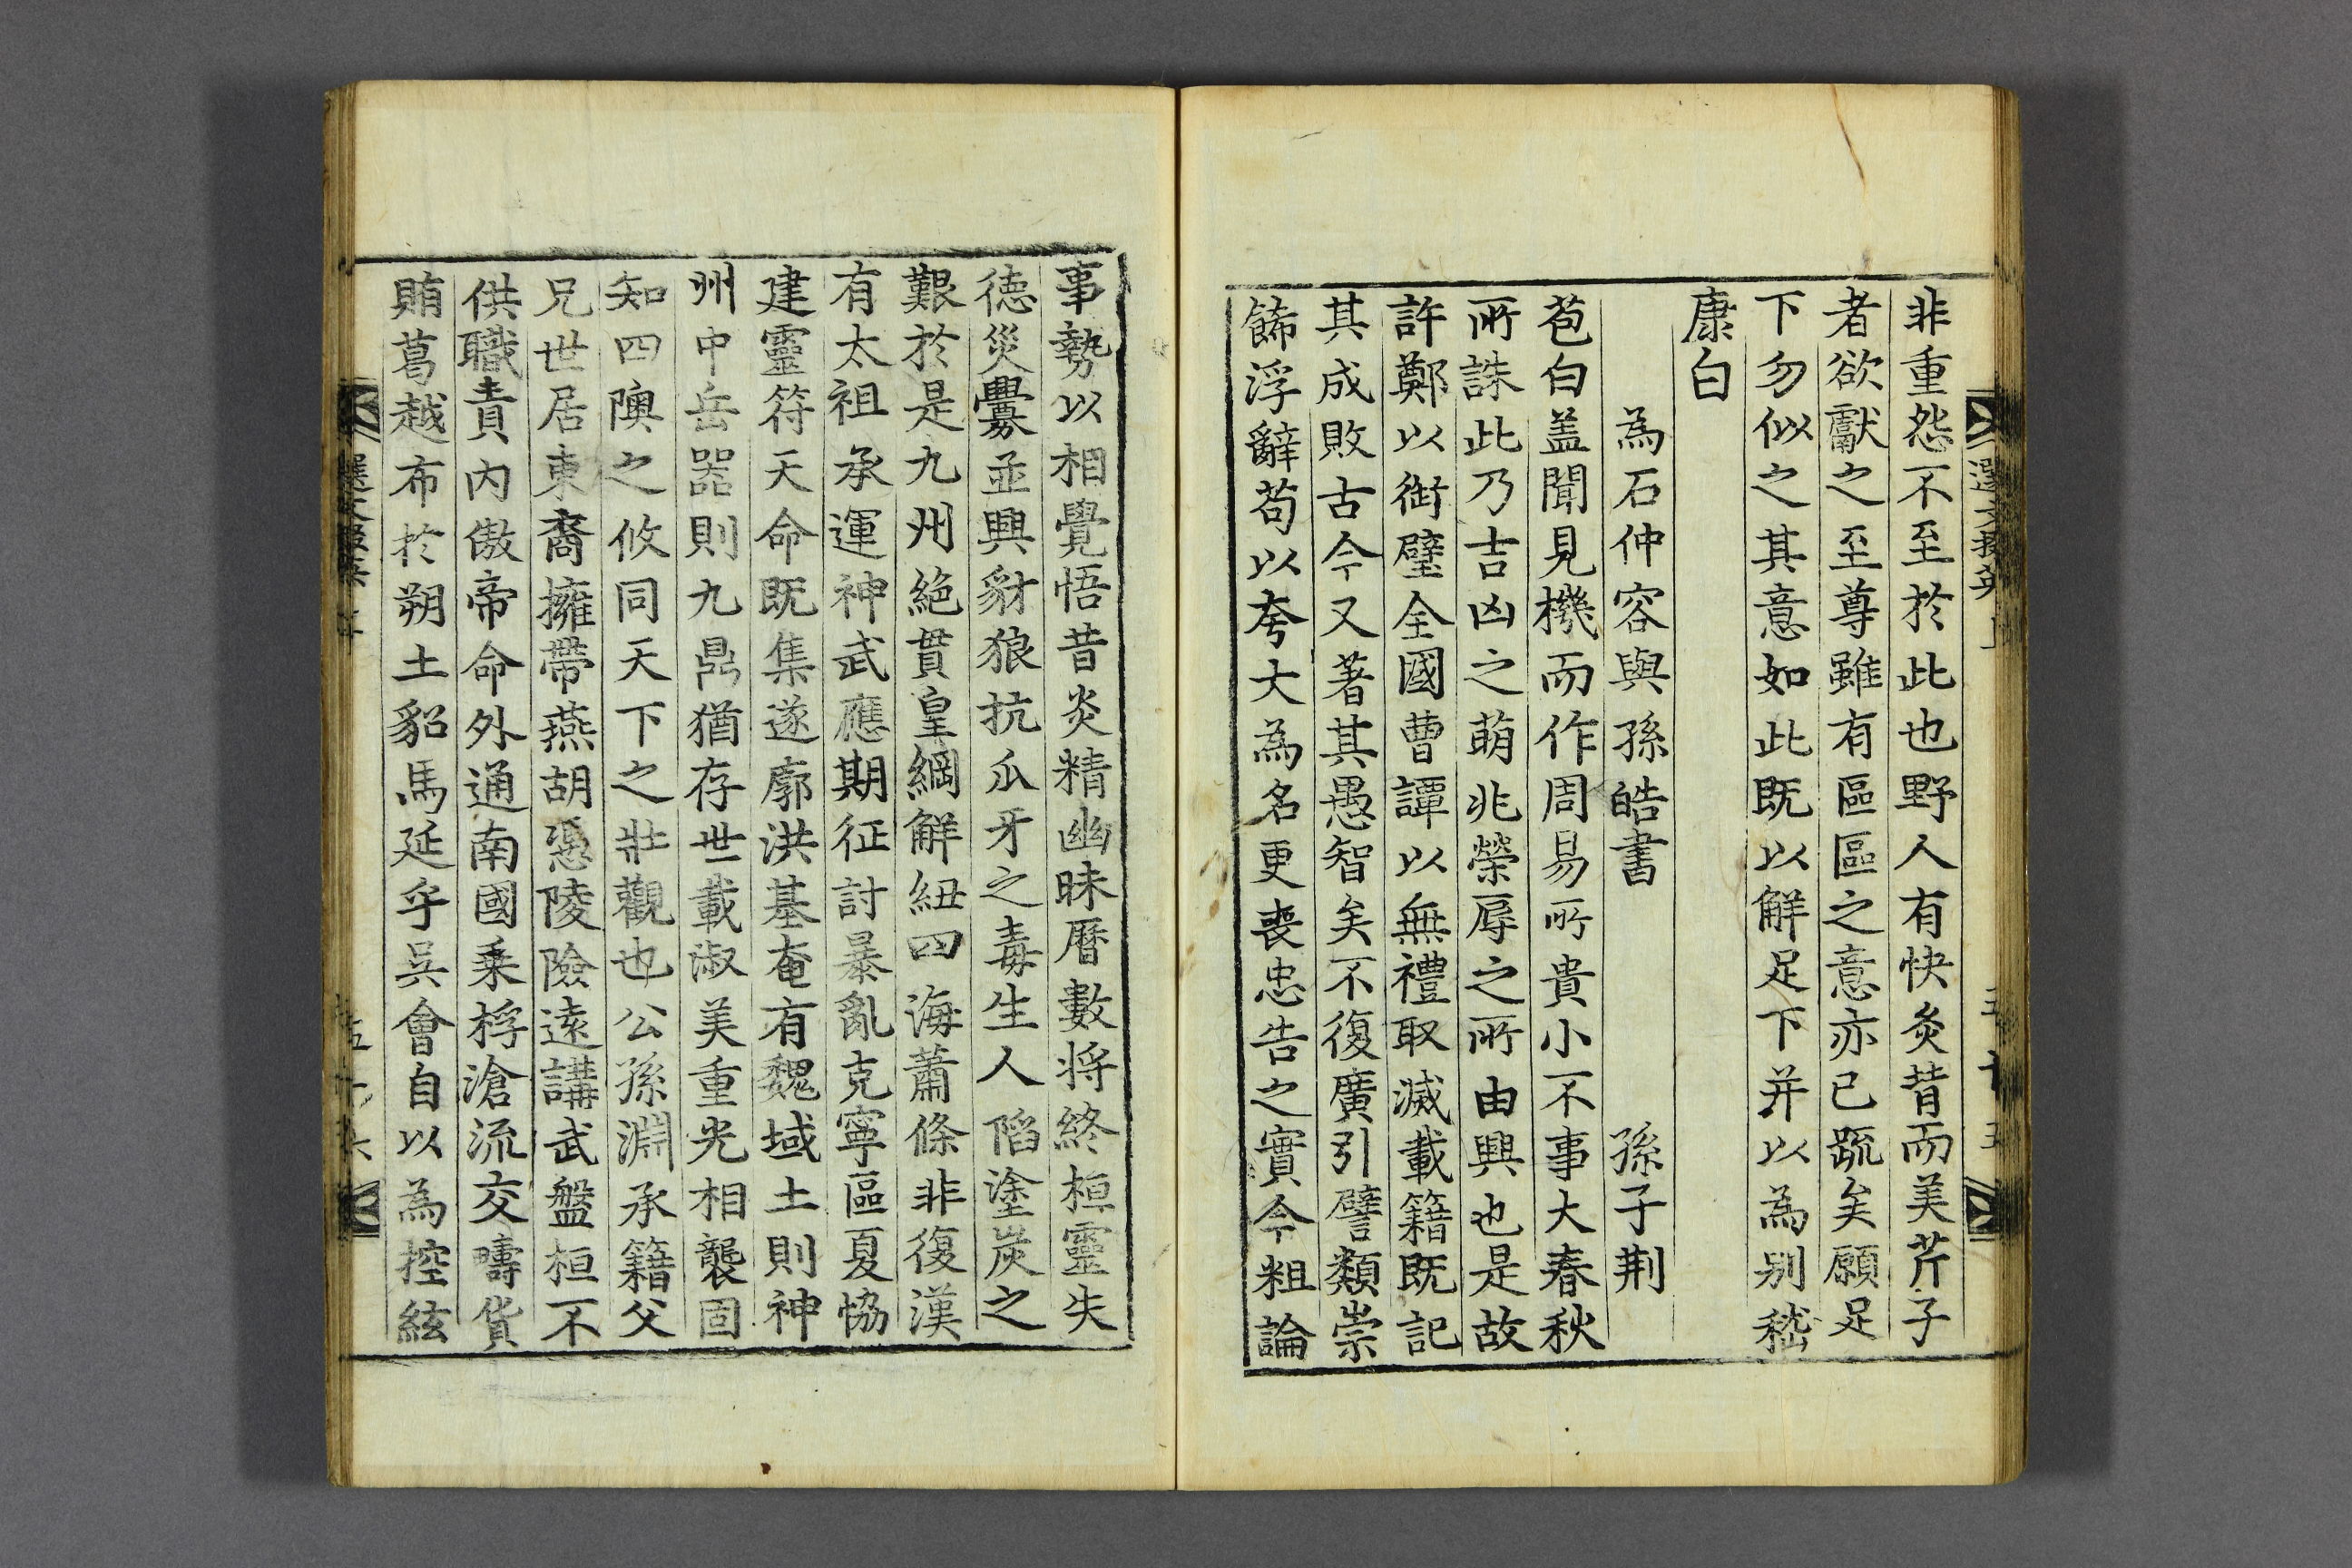 非重怨不至於此也野人有快炙背而美芹子
者欲獻之至尊雖有區區之意亦已疏矣願足
下勿似之其意如此既以解足下并以為別嵇
康白
為石仲容與孫皓書 孫子荆
苞白盖聞見機而作周易所貴小不事大春秋
所誅此乃吉凶之萌兆榮辱之所由興也是故
許鄭以銜璧全國曹譚以無禮取滅載籍既記
其成敗古今又著其愚智矣不復廣引譬類崇
飾浮辭苟以夸大為名更喪忠告之實今粗論
事勢以相覺悟昔炎精幽昧曆數将終桓靈失
德災釁並興豺狼抗爪牙之毒生人陷塗炭之
艱於是九州絶貫皇綱解紐四海蕭條非復漢
有太祖承運神武應期征討暴亂克寧區夏恊
建靈符天命既集遂廓洪基奄有魏域土則神
州中岳器則九鼎猶存世載淑美重光相襲固
知四隩之攸同天下之壯觀也公孫淵承籍父
兄世居東裔擁帶燕胡憑陵險遠講武盤桓不
供職責内傲帝命外通南國乘桴滄流交疇貨
賄葛越布於朔土貂馬延乎吳會自以為控絃